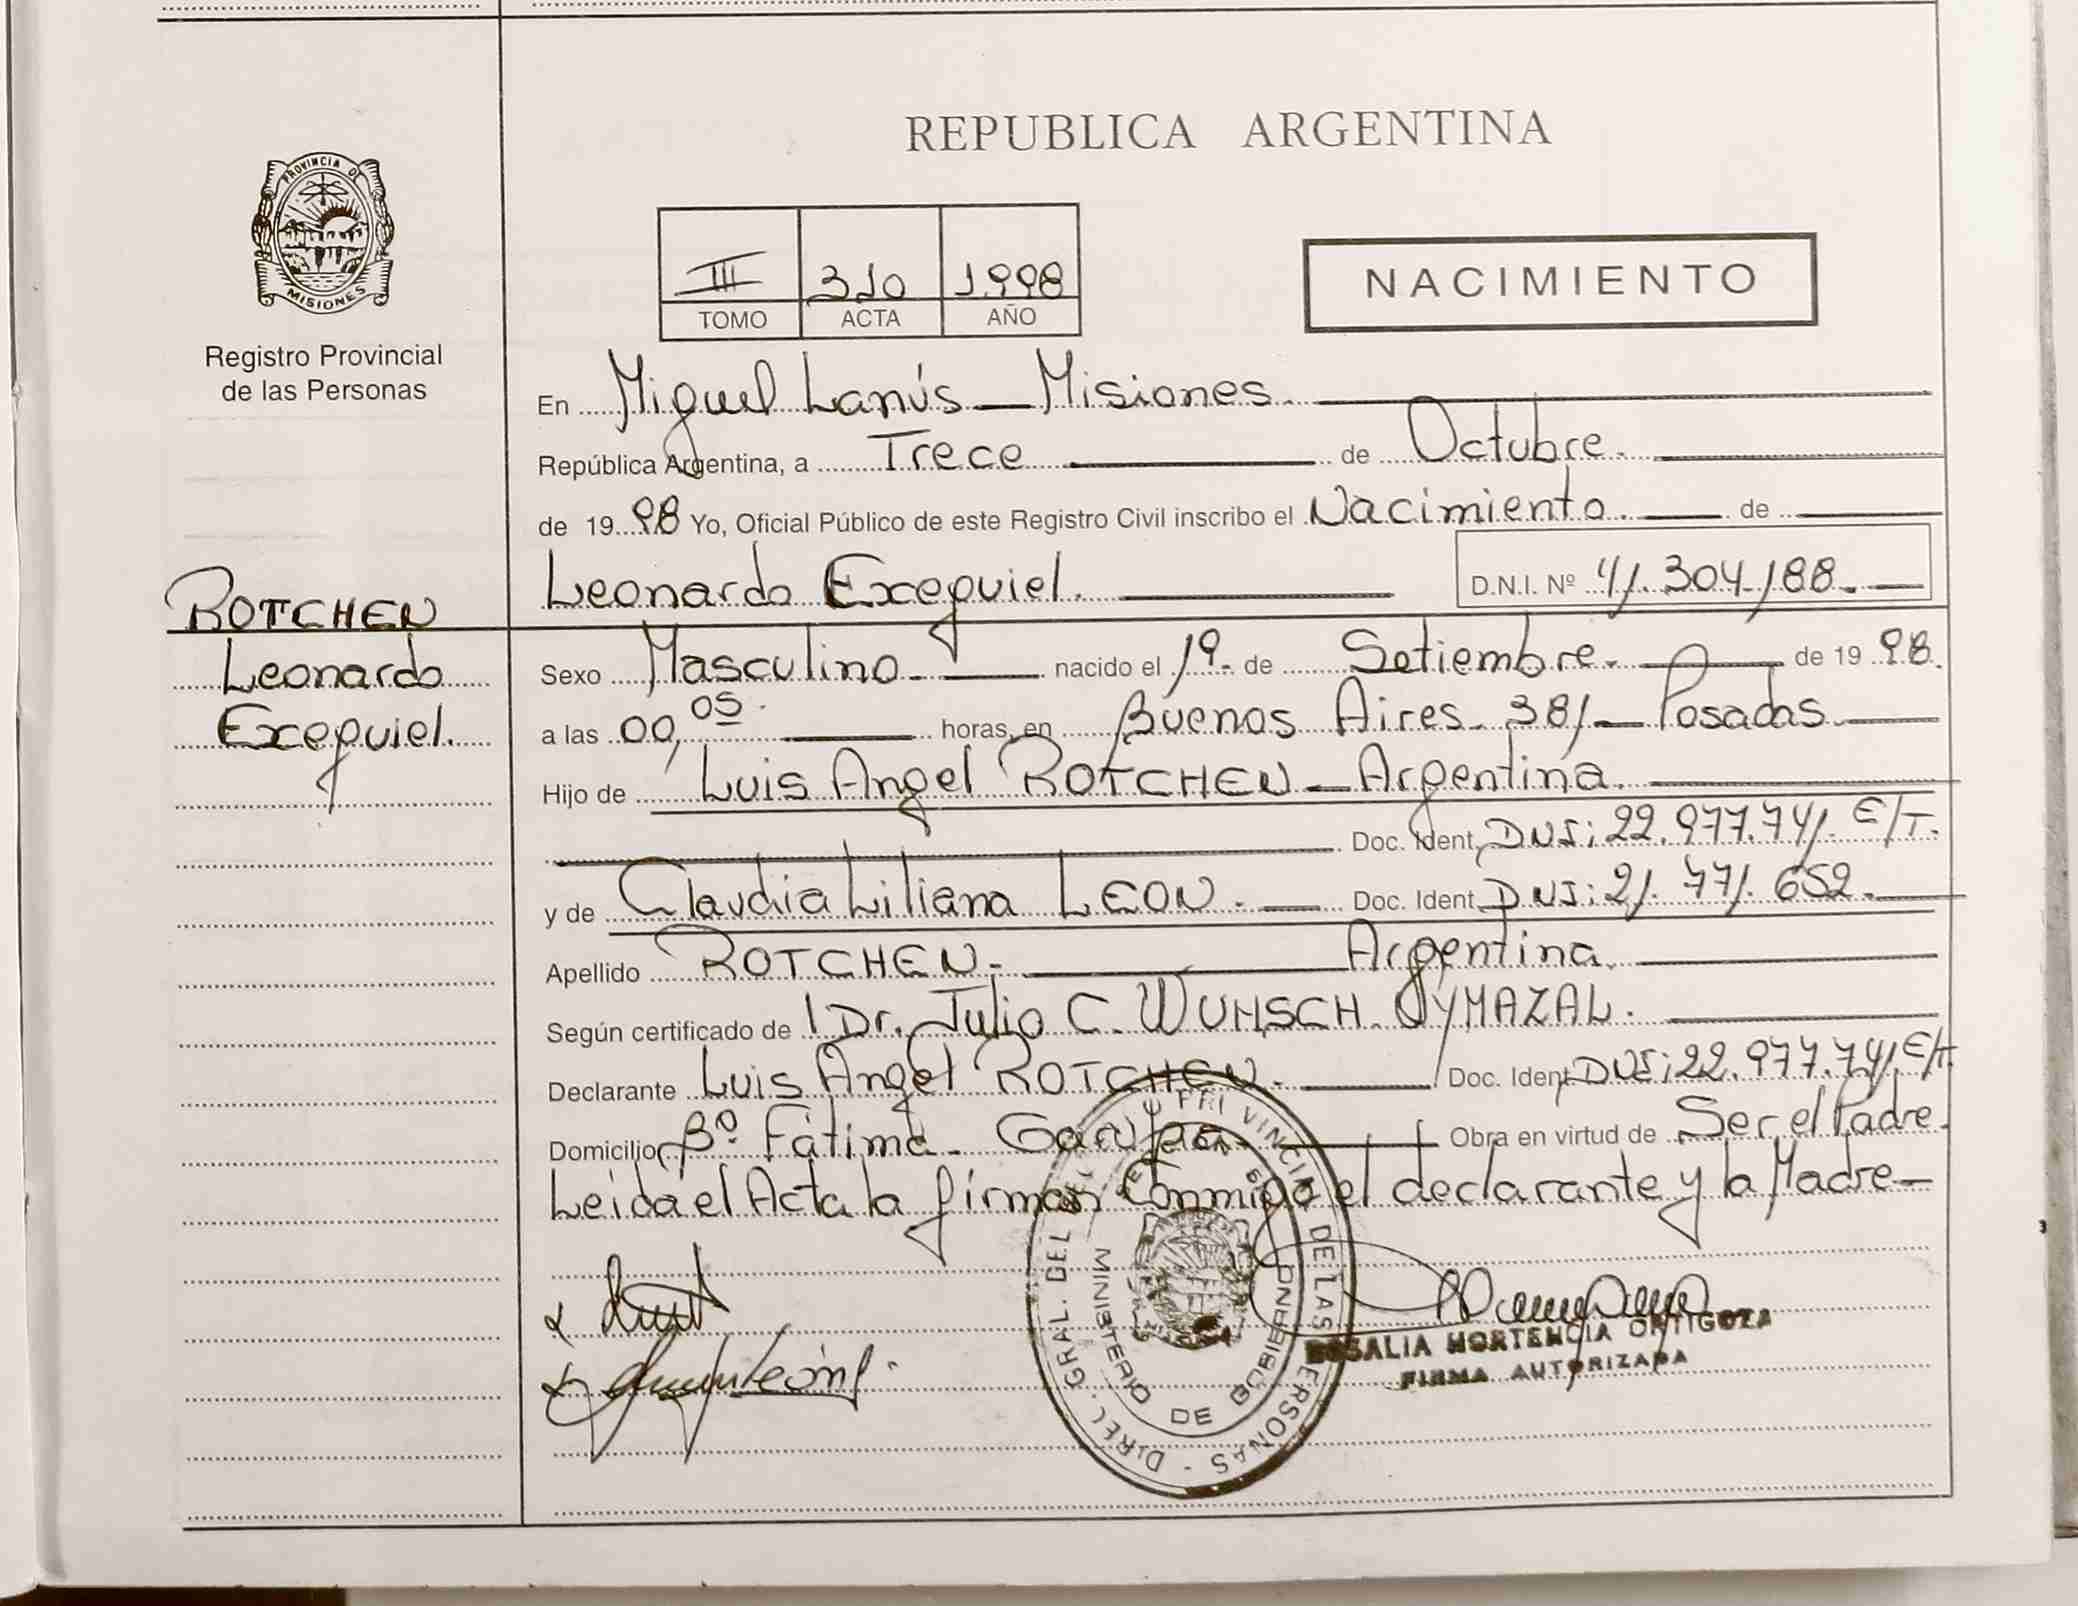 REPUBLICA ARGENTINA
PROVINCIA DE
MISIONES
Registro Provincial
de las Personas
III 310 1998
TOMO ACTA AÑO
NACIMIENTO
En Miguel Lanús - Misiones.
República Argentina, a Trece de Octubre.
de 1998 Yo, Oficial Público de este Registro Civil inscribo el Nacimiento. de
Leonardo Exequiel. D.N.I. Nº 41.304.188.
ROTCHEN
Leonardo
Exequiel.
Sexo Masculino. nacido el 19. de Setiembre. de 1998.
a las 00,05 horas, en Buenos Aires. 381 - Posadas
Hijo de Luis Angel ROTCHEN - Argentina.
Doc. Ident. DNI: 22.977.741. E/T.
y de Claudia Liliana LEON. Doc. Ident. DNI: 21.771.652.
Apellido ROTCHEN. Argentina.
Según certificado de Dr. Julio C. WUHSCH.
Declarante Luis Angel ROTCHEN. Doc. Ident. DNI: 22.977.741.
Domicilio Bº. Fátima. Obra en virtud de Ser el Padre.
Leida el Acta la firman Conmigo el declarante y la Madre-
DIREL. GRAL. DEL DE LAS PERSONAS
MINISTERIO DE GOBIERNO
ROSALIA HORTENCIA ORTIGOZA
FIRMA AUTORIZADA